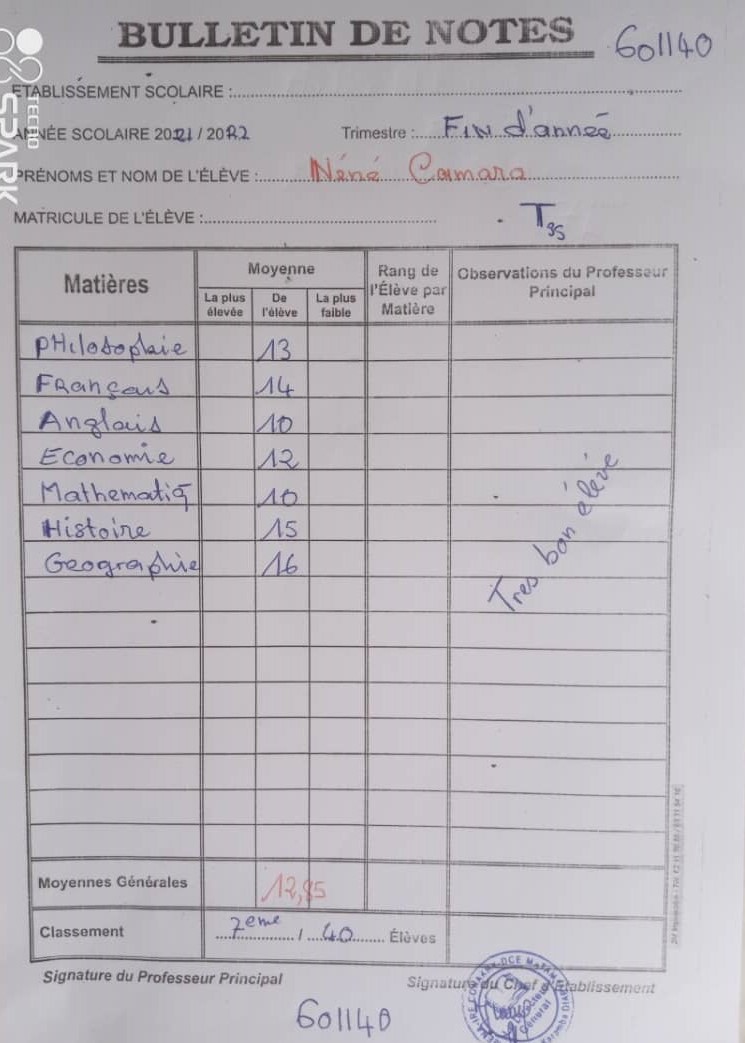 BULLETIN DE NOTES 601140
ETABLISSEMENT SCOLAIRE :
ANNÉE SCOLAIRE 2021 / 2022 Trimestre : FIN d'année
PRÉNOMS ET NOM DE L'ÉLÈVE : Néné Camara
MATRICULE DE L'ÉLÈVE :
TECNO
SPARK
Matières
Moyenne
La plus élevée
De l'élève
La plus faible
Rang de l'Élève par Matière
Observations du Professeur Principal
PHilosophie 13
Français 14
Anglais 10
Economie 12
Mathematiq 10
Histoire 15
Geographie 16
Tres bon élévé
Moyennes Générales 12,85
Classement 7eme / 40 Élèves
Signature du Professeur Principal
Signature du Chef d'Etablissement
601140